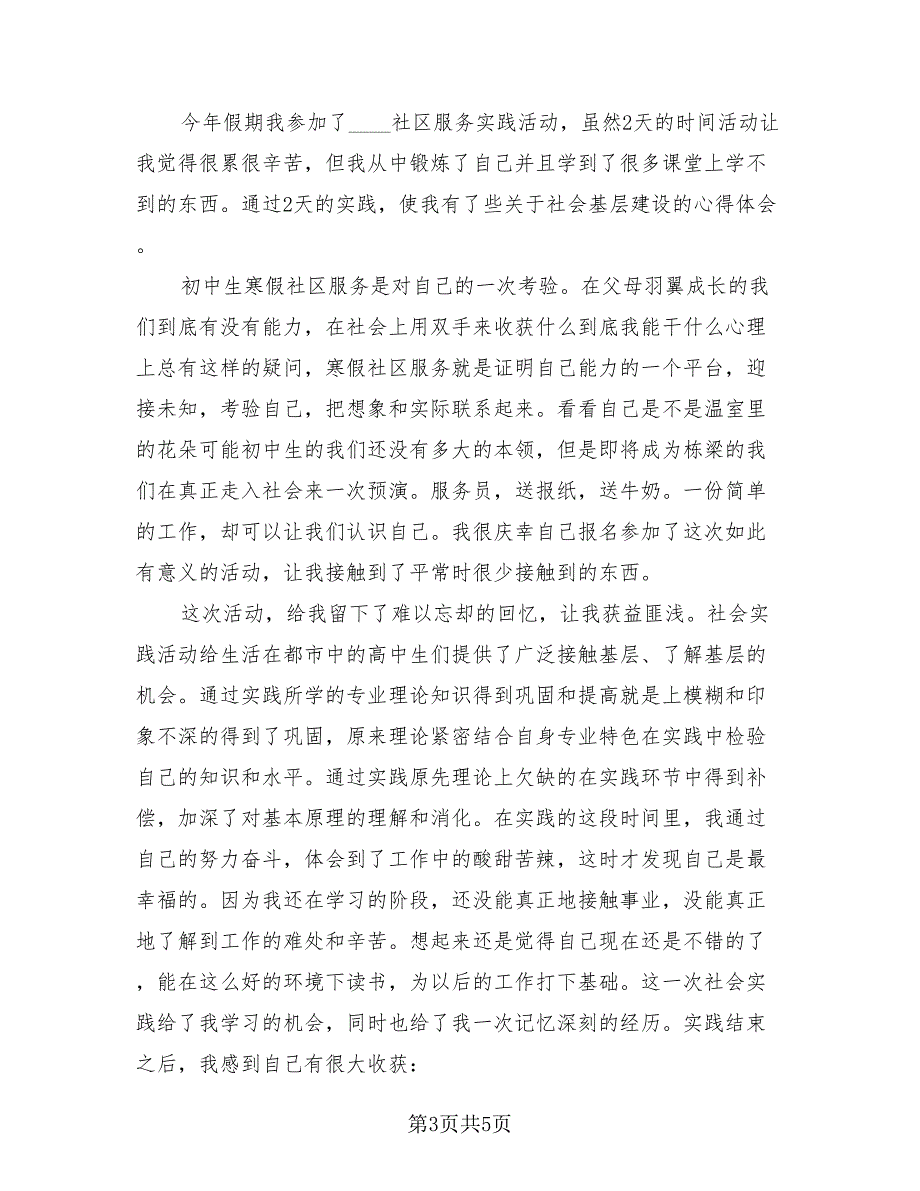 今年假期我参加了____社区服务实践活动，虽然2天的时间活动让
我觉得很累很辛苦，但我从中锻炼了自己并且学到了很多课堂上学不
到的东西。通过2天的实践，使我有了些关于社会基层建设的心得体会
。
初中生寒假社区服务是对自己的一次考验。在父母羽翼成长的我
们到底有没有能力，在社会上用双手来收获什么到底我能干什么心理
上总有这样的疑问，寒假社区服务就是证明自己能力的一个平台，迎
接未知，考验自己，把想象和实际联系起来。看看自己是不是温室里
的花朵可能初中生的我们还没有多大的本领，但是即将成为栋梁的我
们在真正走入社会来一次预演。服务员，送报纸，送牛奶。一份简单
的工作，却可以让我们认识自己。我很庆幸自己报名参加了这次如此
有意义的活动，让我接触到了平常时很少接触到的东西。
这次活动，给我留下了难以忘却的回忆，让我获益匪浅。社会实
践活动给生活在都市中的高中生们提供了广泛接触基层、了解基层的
机会。通过实践所学的专业理论知识得到巩固和提高就是上模糊和印
象不深的得到了巩固，原来理论紧密结合自身专业特色在实践中检验
自己的知识和水平。通过实践原先理论上欠缺的在实践环节中得到补
偿，加深了对基本原理的理解和消化。在实践的这段时间里，我通过
自己的努力奋斗，体会到了工作中的酸甜苦辣，这时才发现自己是最
幸福的。因为我还在学习的阶段，还没能真正地接触事业，没能真正
地了解到工作的难处和辛苦。想起来还是觉得自己现在还是不错的了
，能在这么好的环境下读书，为以后的工作打下基础。这一次社会实
践给了我学习的机会，同时也给了我一次记忆深刻的经历。实践结束
之后，我感到自己有很大收获：
第3页共5页